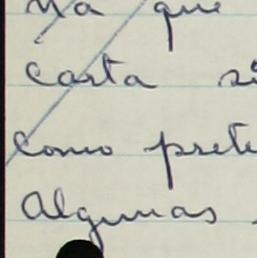 Ya que
Carta si
Como prete
Algunas